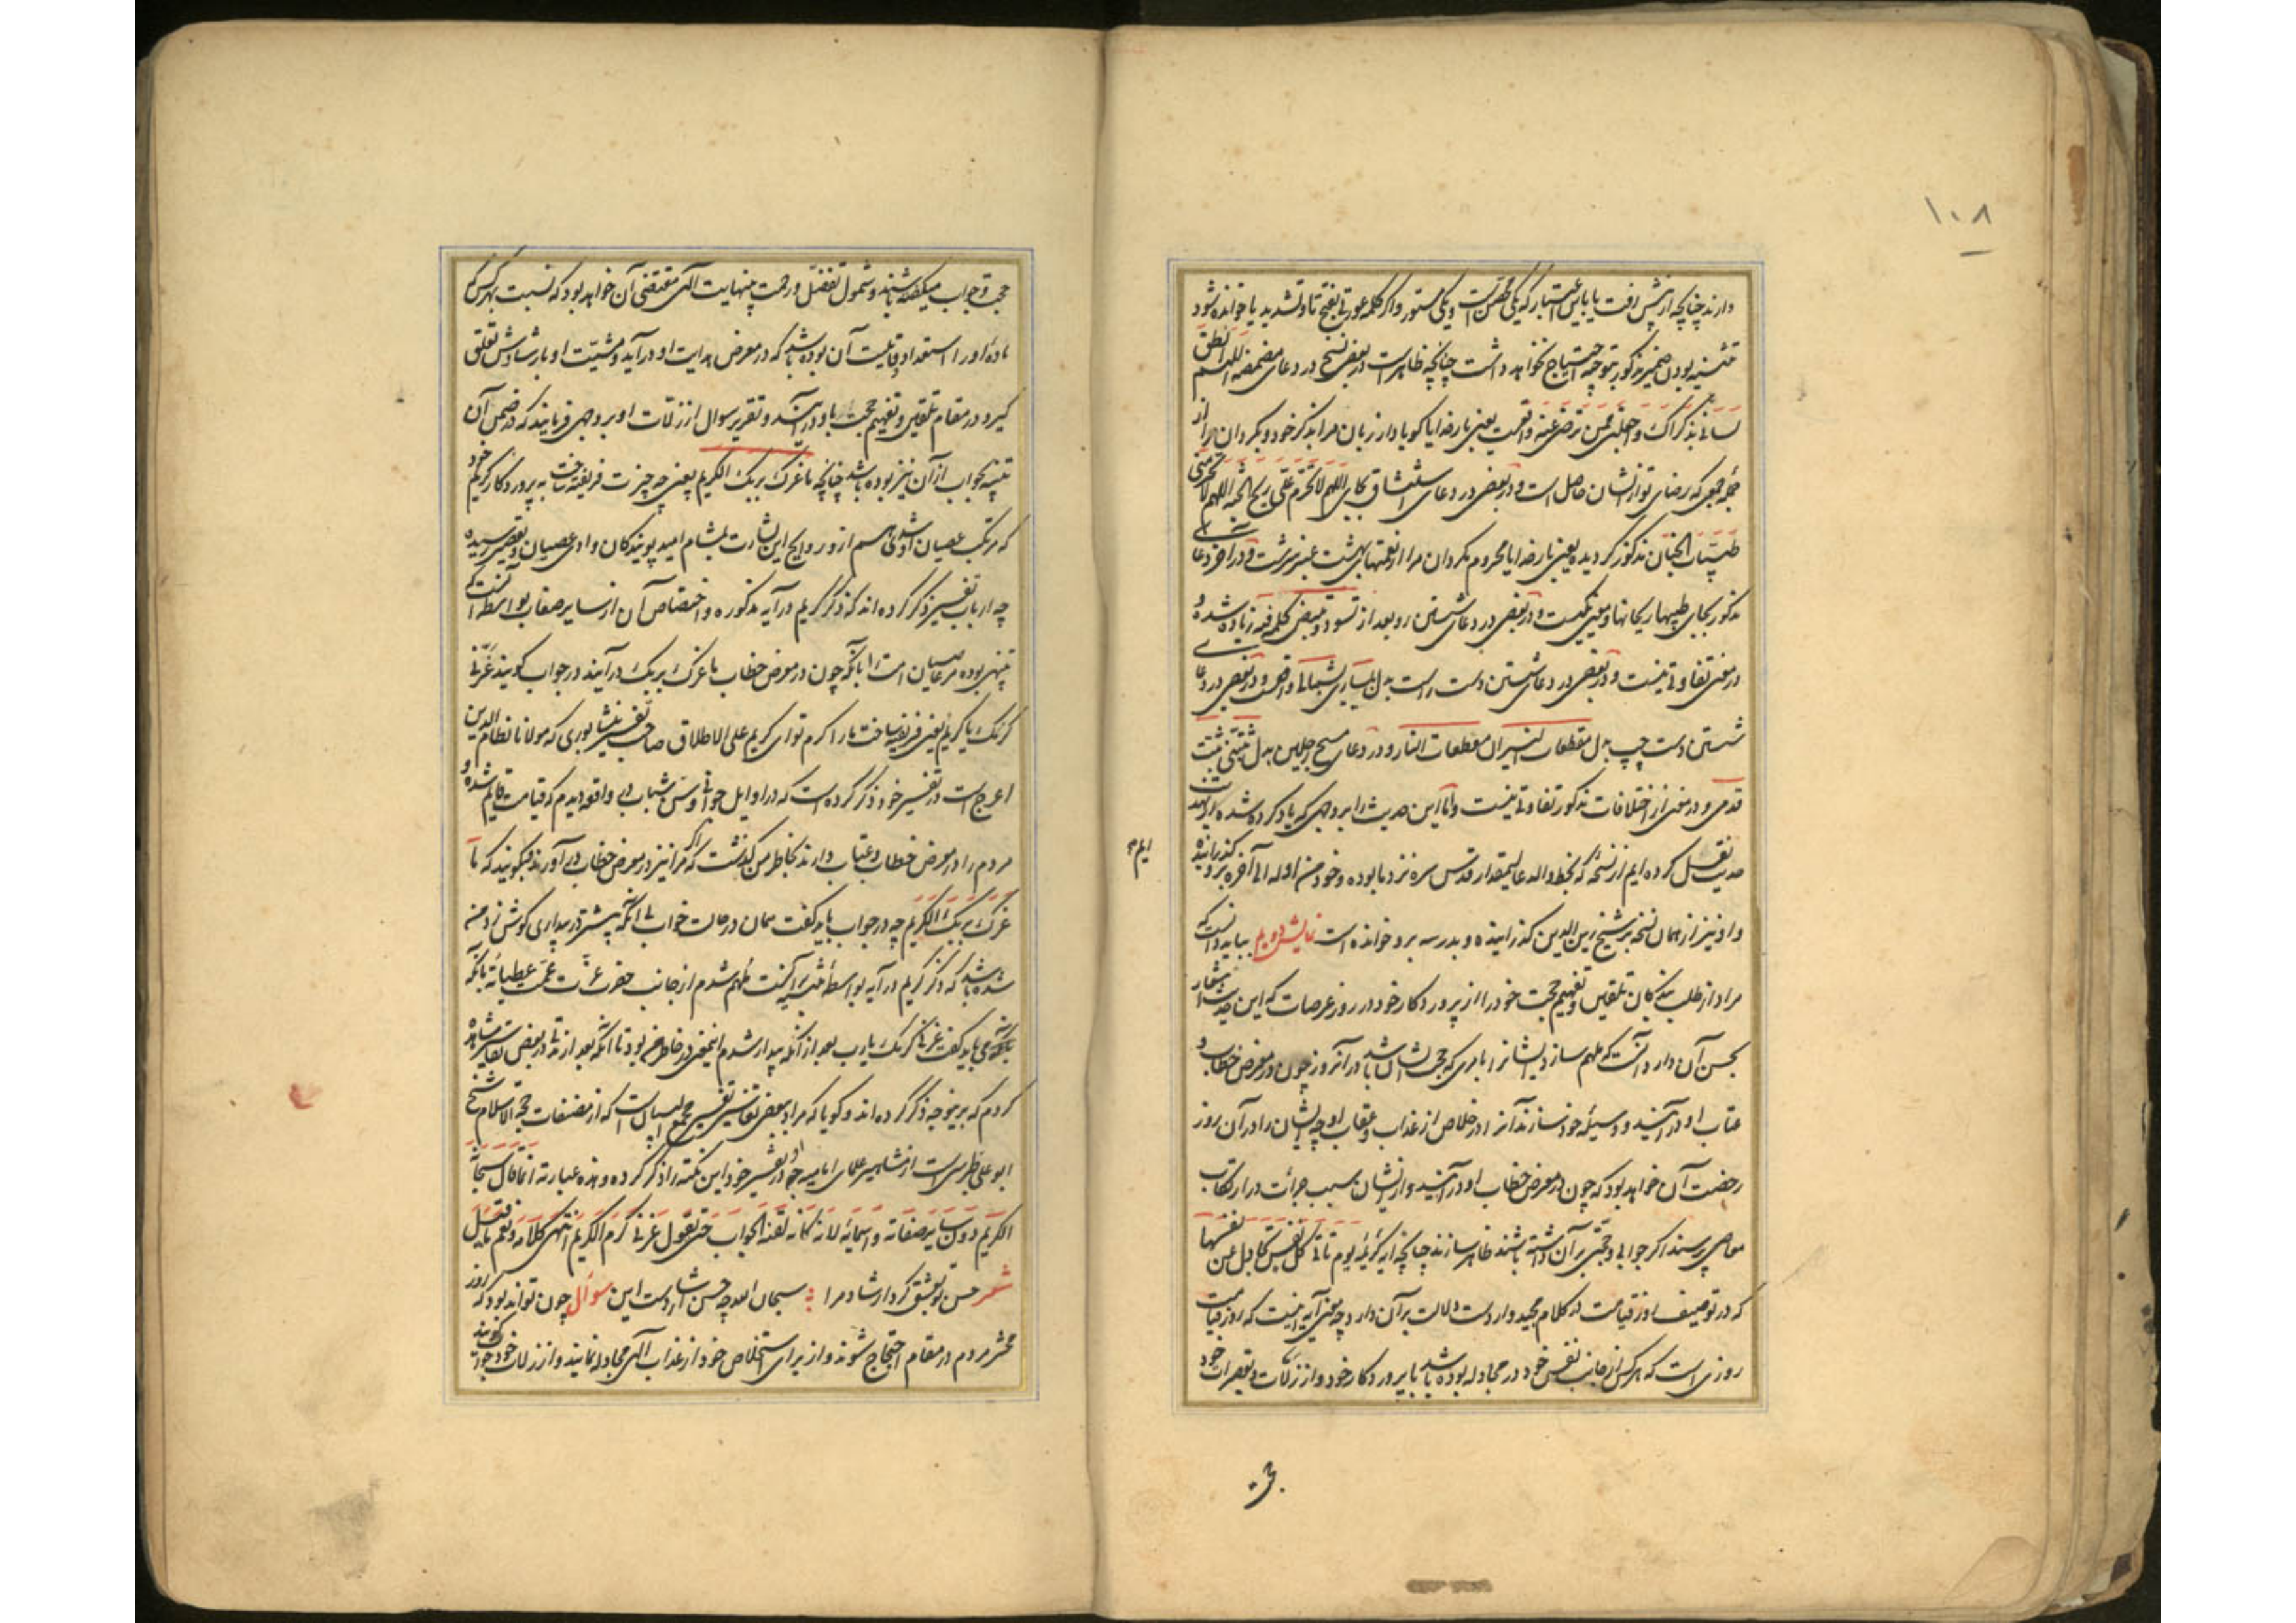 ۱۰۸
دارند چنانچه ازین پیش رفت یا باین اعتبار که یکی مظهر است و یکی مستور و اگر کلمه عورتی بفتح تا و تشدید یا خوانده شود
تثنیه بودن ضمیر مذکور بتوجیه احتیاج نخواهد داشت چنانچه ظاهر است و در بعضی نسخ در دعای مضمضه اللهم انطق
لسانی بذکراک و اجعلنی ممن ترضی عنه واقعست یعنی بارخدایا کویا دار زبان مرا بذکر خود و بکردان مرا از
جمله جمعی که رضای تو از ایشان حاصل است و در بعضی در دعای استنشاق بجای اللهم لا تحرم علی ریح الجنه اللهم لا تحرمنی
طیبات الجنان مذکور کردیده یعنی بارخدایا محروم مکردان مرا از نعمتهای بهشت عنبر سرشت و در آخر دعای
مذکور بجای طیبها ریحانها و معنی یکیست و در بعضی در دعای شستن رو بعد از تسود و تبیض کلمه فیه زیاده شده و
در معنی تفاوتی نیست و در بعضی در دعای شستن دست راست بدل بیساری بشمالی واقعست و در بعضی در دعای
شستن دست چپ بدل مقطعات النیران مقطعات النار و در دعای مسح رجلین بدل ثبتنی ثبت
قدمی و در معنی از اختلافات مذکور تفاوتی نیست و اما این حدیث را بر وجهی که یاد کرده شد از تهذیب
حدیث نقل کرده ایم از نسخه که بخط والد عالیمقدار قدس سره نزد ما بوده و خود من اوله الی آخره برو کذرانیده
ایم
و او نیز از همان نسخه بر شیخ زین الدین کذرانیده و بدرسه برو خوانده است نمایش دویم بباید دانست که
مراد از طلب بندکان تلقین و تفهیم حجت خود را از پروردکار خود در روز عرصات که این حدیث اشعار
بحسن آن دارد آنست که ملهم سازد ایشانرا بامری که حجت ایشان باشد در آنروز چون در معرض خطاب و
عتاب او در آیند و وسیله خود سازند آنرا در خلاص از عذاب و عقاب او چه ایشان را در آن روز
رخصت آن خواهد بود که چون در معرض خطاب او در آیند و از ایشان سبب جرات در ارتکاب
معاصی پرسند اکر جوابی و حجتی بر آن داشته باشند ظاهر سازند چنانچه آیه کریمه یوم تاتی کل نفس تجادل عن نفسها
که در توصیف روز قیامت در کلام مجید وارد است دلالت بر آن دارد چه معنی آیه اینست که روز قیامت
روزی است که هر کس از جانب نفس خود در مجادله بوده باشد با پروردکار خود و از زلات و تقصیرات خود
حجت و جواب میکفته باشند و شمول تفضل و رحمت بینهایت الهی مقتضی آن خواهد بود که نسبت بهر کس که
ماده او را استعداد و قابلیت آن بوده باشد که در معرض هدایت او درآید و مشیت او بارشادش تعلق
کیرد در مقام تلقین و تفهیم حجت باو درآیند و تقریر سوال از زلات او بر وجهی فرمایند که در ضمن آن
تنبیه بجواب از آن نیز بوده باشد چنانچه ما غرک بربک الکریم یعنی چه چیزت فریفته ساخت به پروردکار کریم خود
که مرتکب عصیان او شدی هم از و روایح این بشارت بمشام امید پویندکان وادی عصیان و تقصیر رسیده
چه ارباب تفسیر ذکر کرده اند که ذکر کریم در آیه مذکوره و اختصاص آن از سایر صفات بواسطه آنست که
تنبیهی بوده مر عاصیان امت را بآنکه چون در معرض خطاب ما غرک بربک درآیند در جواب کویند غرنی
کرمک یا کریم یعنی فریفته ساخت ما را کرم تو ای کریم علی الاطلاق صاحب تفسیر نیشابوری که مولانا نظام الدین
اعرج است در تفسیر خود ذکر کرده است که در اوایل جوانی و سن شباب در واقعه دیدم که قیامت قایم شده و
مردم را در معرض خطاب و عتاب دارند بخاطر من کذشت که اکر مرا نیز در معرض خطاب درآورند و بکویند که ما
غرک بربک الکریم چه در جواب باید کفت همان در حالت خواب بی آنکه پیشتر در بیداری کوش زد من
شده باشد که ذکر کریم در آیه بواسطه تنبیه آنست ملهم شدم از جانب حضرت عزت عمت عطیاته بآنکه
می باید کفت غرنی کرمک یا رب بعد از آنکه بیدار شدم اینمعنی در خاطرم بود تا آنکه بعد از مدتی در بعضی تفاسیر مشاهده
کردم که برینوجه ذکر کرده اند و کویا که مراد ببعض تفاسیر تفسیر مجمع البیان است که از مصنفات حجة الاسلام شیخ
ابو علی طبرسی است از مشاهیر علمای امامیه چه او در تفسیر خود این نکته را ذکر کرده و هذه عبارته انما قال سبحانه
الکریم دون سایر صفاته و اسمائه لانه کانه لقنه الجواب حتی یقول غرنی کرم الکریم انتهی کلامه و نعم ما قیل
شعر حسن توبشق کرد ارشاد مرا سبحان الله چه حسن ارشادست این سوال چون تواند بود که روز
محشر مردم در مقام احتجاج شوند و از برای استخلاص خود از عذاب الهی مجادله نمایند و از زلات خود جواب کویند